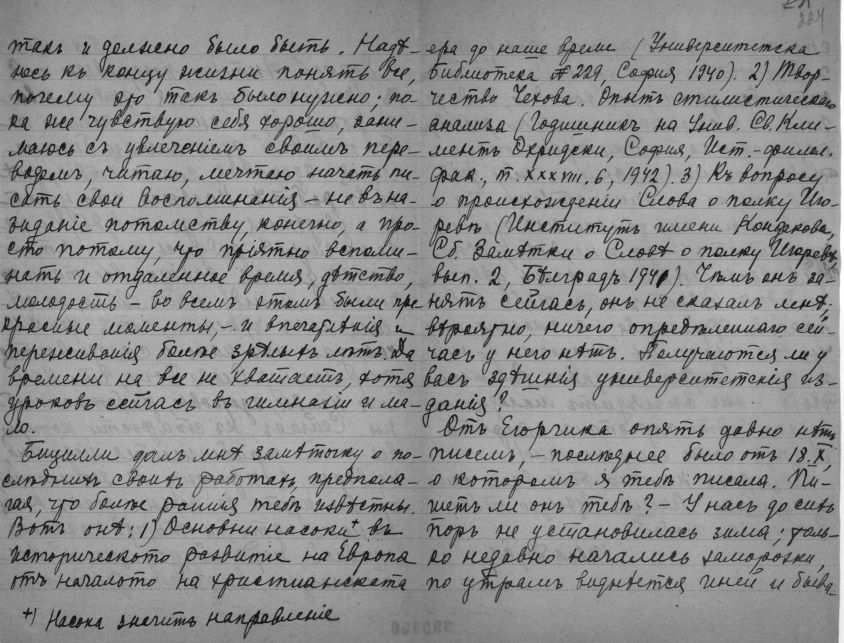 227
такъ и должно было быть. Надѣ-
юсь къ концу жизни понять все,
почему это такъ было нужно; по-
ка же чувствую себя хорошо, зани-
маюсь съ увлеченіемъ своимъ пере-
водомъ, читаю, мечтаю начать пи-
сать свои воспоминанія – не въ на-
зиданіе потомству, конечно, а про-
сто потому, что пріятно вспоми-
нать и отдаленное время, дѣтство,
молодость – во всемъ этомъ были пре
красные моменты, – и впечатлѣнія и
переживанія болѣе зрѣлыхъ лѣтъ. Да
времени на все не хватаетъ, хотя
уроковъ сейчасъ въ гимназіи и ма-
ло.
Бицилли далъ мнѣ замѣтку о по-
слѣднихъ своихъ работахъ, предпола-
гая, что болѣе раннія тебѣ извѣстны.
Вотъ онѣ: 1) Основни насоки+ въ
историческото развитие на Европа
отъ началото на христианската
+) Насока значитъ направленіе
ера до наше време (Университетска
библиотека № 229, София 1940). 2) Твор-
чество Чехова. Опытъ стилистическаго
анализа (Годишникъ на Унив. Св. Кли-
ментъ Охридски, София, Ист.-филол.
фак., т. XXXVIII, 6, 1942). 3) Къ вопросу
о происхожденіи Слова о полку Иго-
ревѣ (Институтъ имени Кондакова,
Сб. Замѣтки о Словѣ о полку Игоревѣ,
вып. 2, Бѣлградъ 1941). Чѣмъ онъ за-
нятъ сейчасъ, онъ не сказалъ мнѣ;
вѣроятно, ничего опредѣленнаго сей-
часъ у него нѣтъ. Получаются ли у
васъ здѣшнія университетскія из-
данія?
Отъ Егорчика опять давно нѣтъ
писемъ, – послѣднее было отъ 18.X,
о которомъ я тебѣ писала. Пи-
шетъ ли онъ тебѣ? – У насъ до сихъ
поръ не установилась зима; толь-
ко недавно начались заморозки,
по утрамъ виднѣется иней и быва